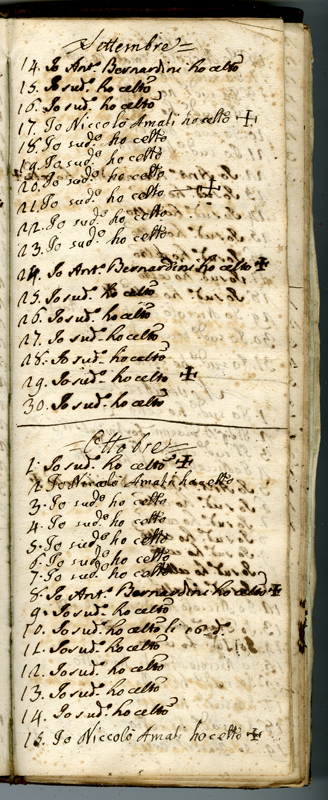 Settembre =
14. Io Ant.º Bernardini ho celto
15. Io sud.º ho celto
16. Io sud.º ho celto
17. Io Niccolò Amati ho celto ✝
18. Io sud.º ho celto
19. Io sud.º ho celto
20. Io sud.º ho celto
21. Io sud.º ho celto ✝
22. Io sud.º ho celto
23. Io sud.º ho celto
24. Io Ant.º Bernardini ho celto ✝
25. Io sud.º ho celto
26. Io sud.º ho celto
27. Io sud.º ho celto
28. Io sud.º ho celto
29. Io sud.º ho celto ✝
30. Io sud.º ho celto
Ottobre =
1. Io sud.º ho celto ✝
2. Io Niccolò Amati ho celto
3. Io sud.º ho celto
4. Io sud.º ho celto
5. Io sud.º ho celto
6. Io sud.º ho celto
7. Io sud.º ho celto
8. Io Ant.º Bernardini ho celto ✝
9. Io sud.º ho celto
10. Io sud.º ho celto li 16 d.º
11. Io sud.º ho celto
12. Io sud.º ho celto
13. Io sud.º ho celto
14. Io sud.º ho celto
15. Io Niccolò Amati ho celto ✝